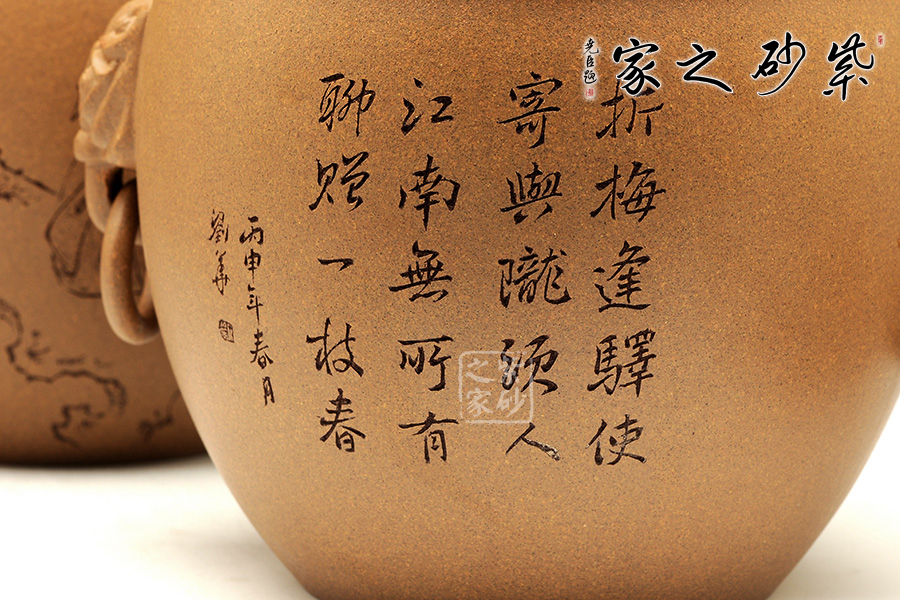 紫砂之家
折梅逢驛使
寄與隴頭人
江南無所有
聊贈一枝春
丙申年春月
劉華
之家
砂